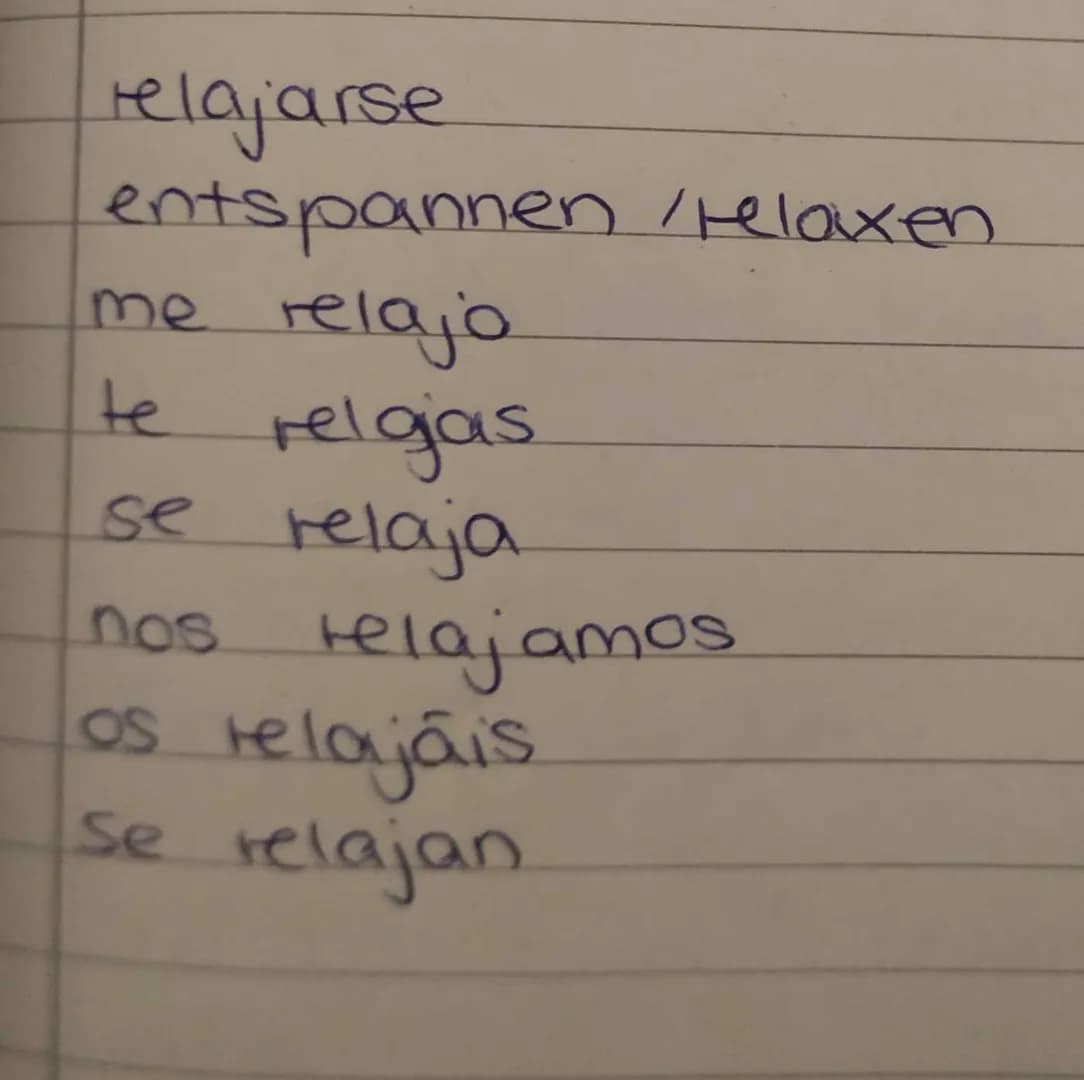 relajarse
entspannen /relaxen
me relajo
te relajas
se relaja
nos relajamos
os relajāis
se relajan